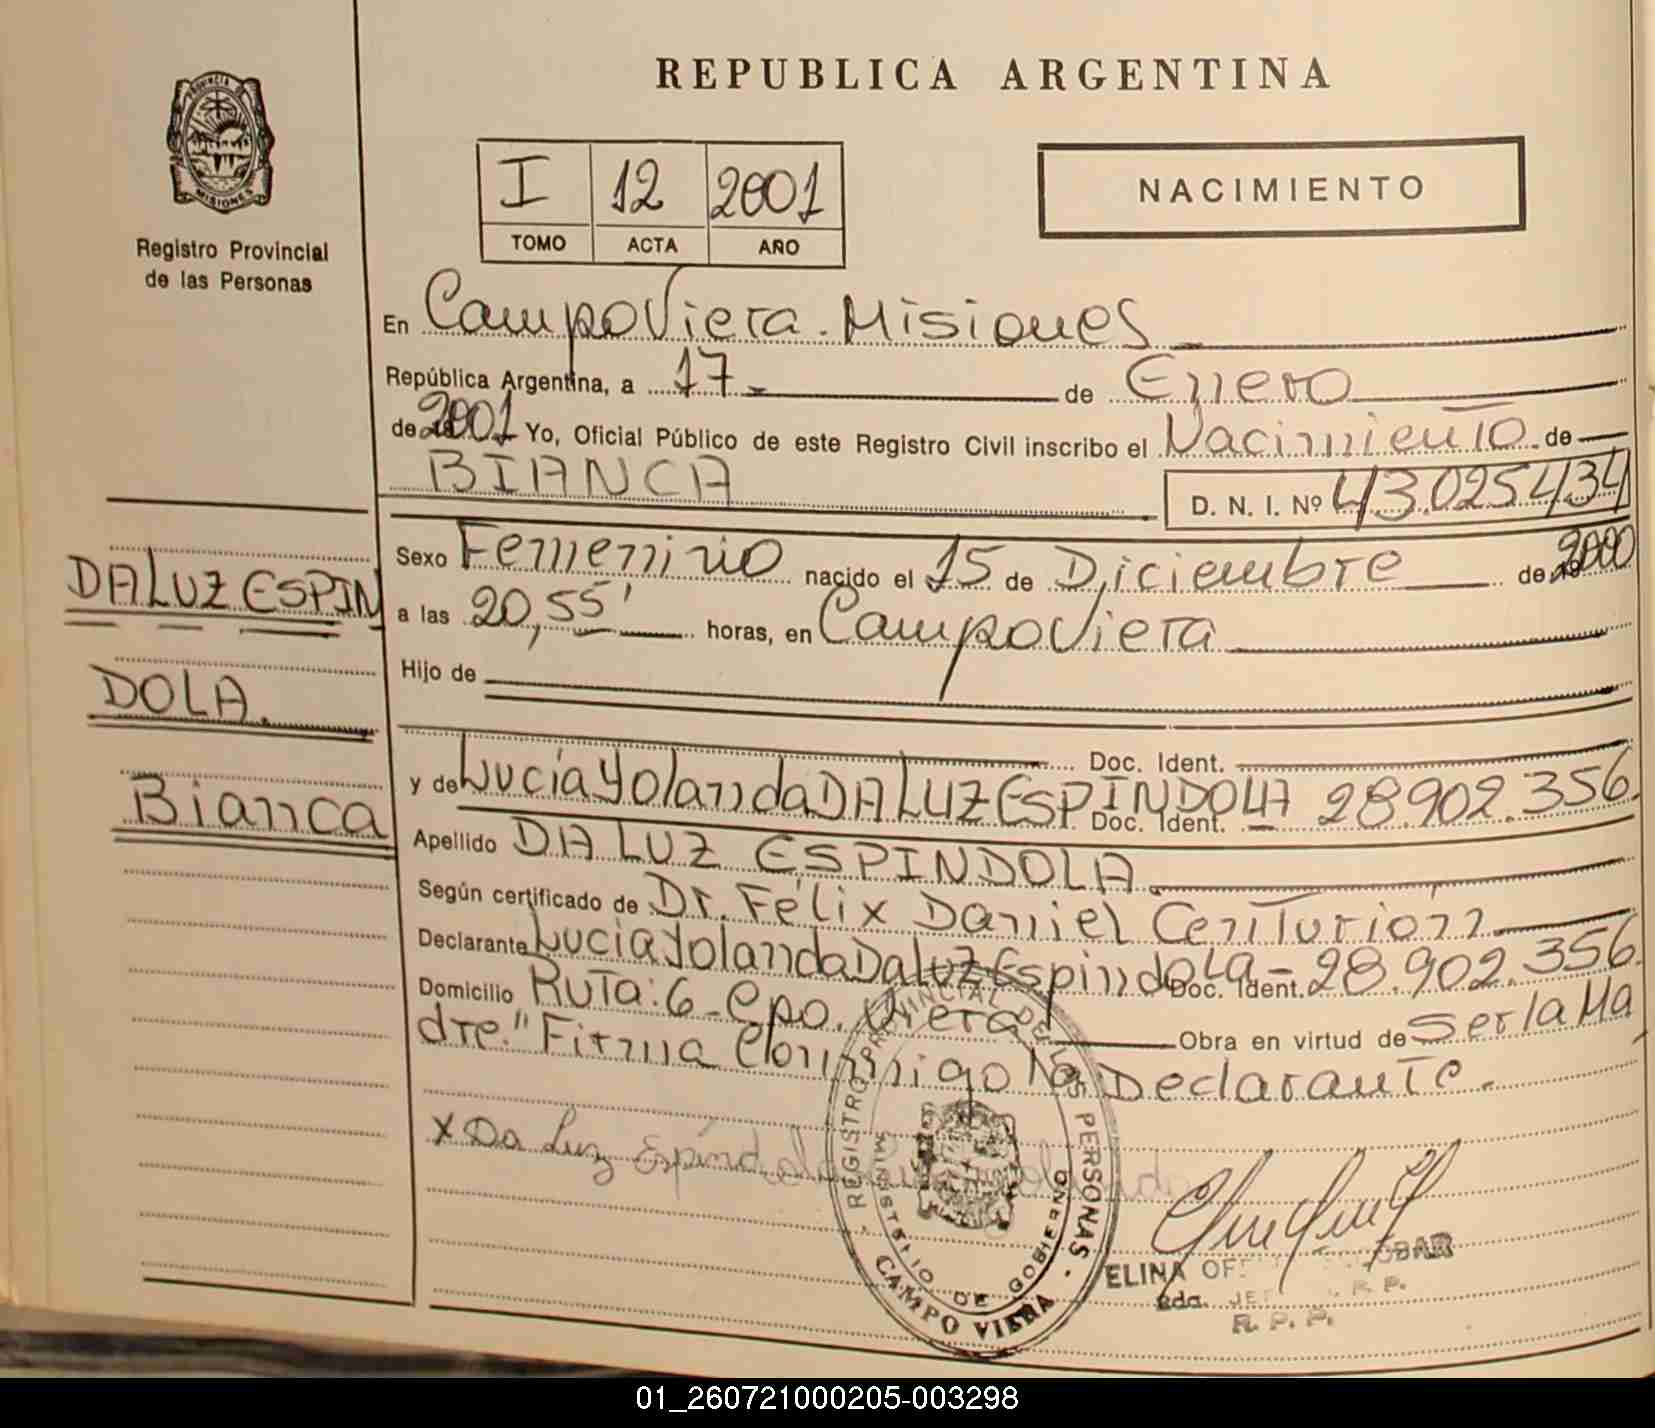 REPUBLICA ARGENTINA
PROVINCIA DE
MISIONES
Registro Provincial
de las Personas
I 12 2001
TOMO ACTA AÑO
NACIMIENTO
En Campo Viera. Misiones
República Argentina, a 17 de Enero
de 2001 Yo, Oficial Público de este Registro Civil inscribo el Nacimiento de
BIANCA D. N. I. Nº 43.025.434
DA LUZ ESPIN
DOLA.
Bianca
Sexo Femenino nacido el 15 de Diciembre de 2000
a las 20,55' horas, en Campo Viera
Hijo de
Doc. Ident.
y de Lucía Yolanda DA LUZ ESPINDOLA Doc. Ident. 28.902.356.
Apellido DA LUZ ESPINDOLA.
Según certificado de Dr. Félix Daniel Centurión
Declarante Lucía Yolanda Da Luz Espindola - Doc. Ident. 28.902.356.
Domicilio Ruta: 6 - Cpo. Viera Obra en virtud de ser la Ma
dre." Firma Conmigo la Declarante.
x Da Luz Espindola
REGISTRO PROVINCIAL DE LAS PERSONAS
MINISTERIO DE GOBIERNO
CAMPO VIERA
ELINA
R. P. P.
01_260721000205-003298